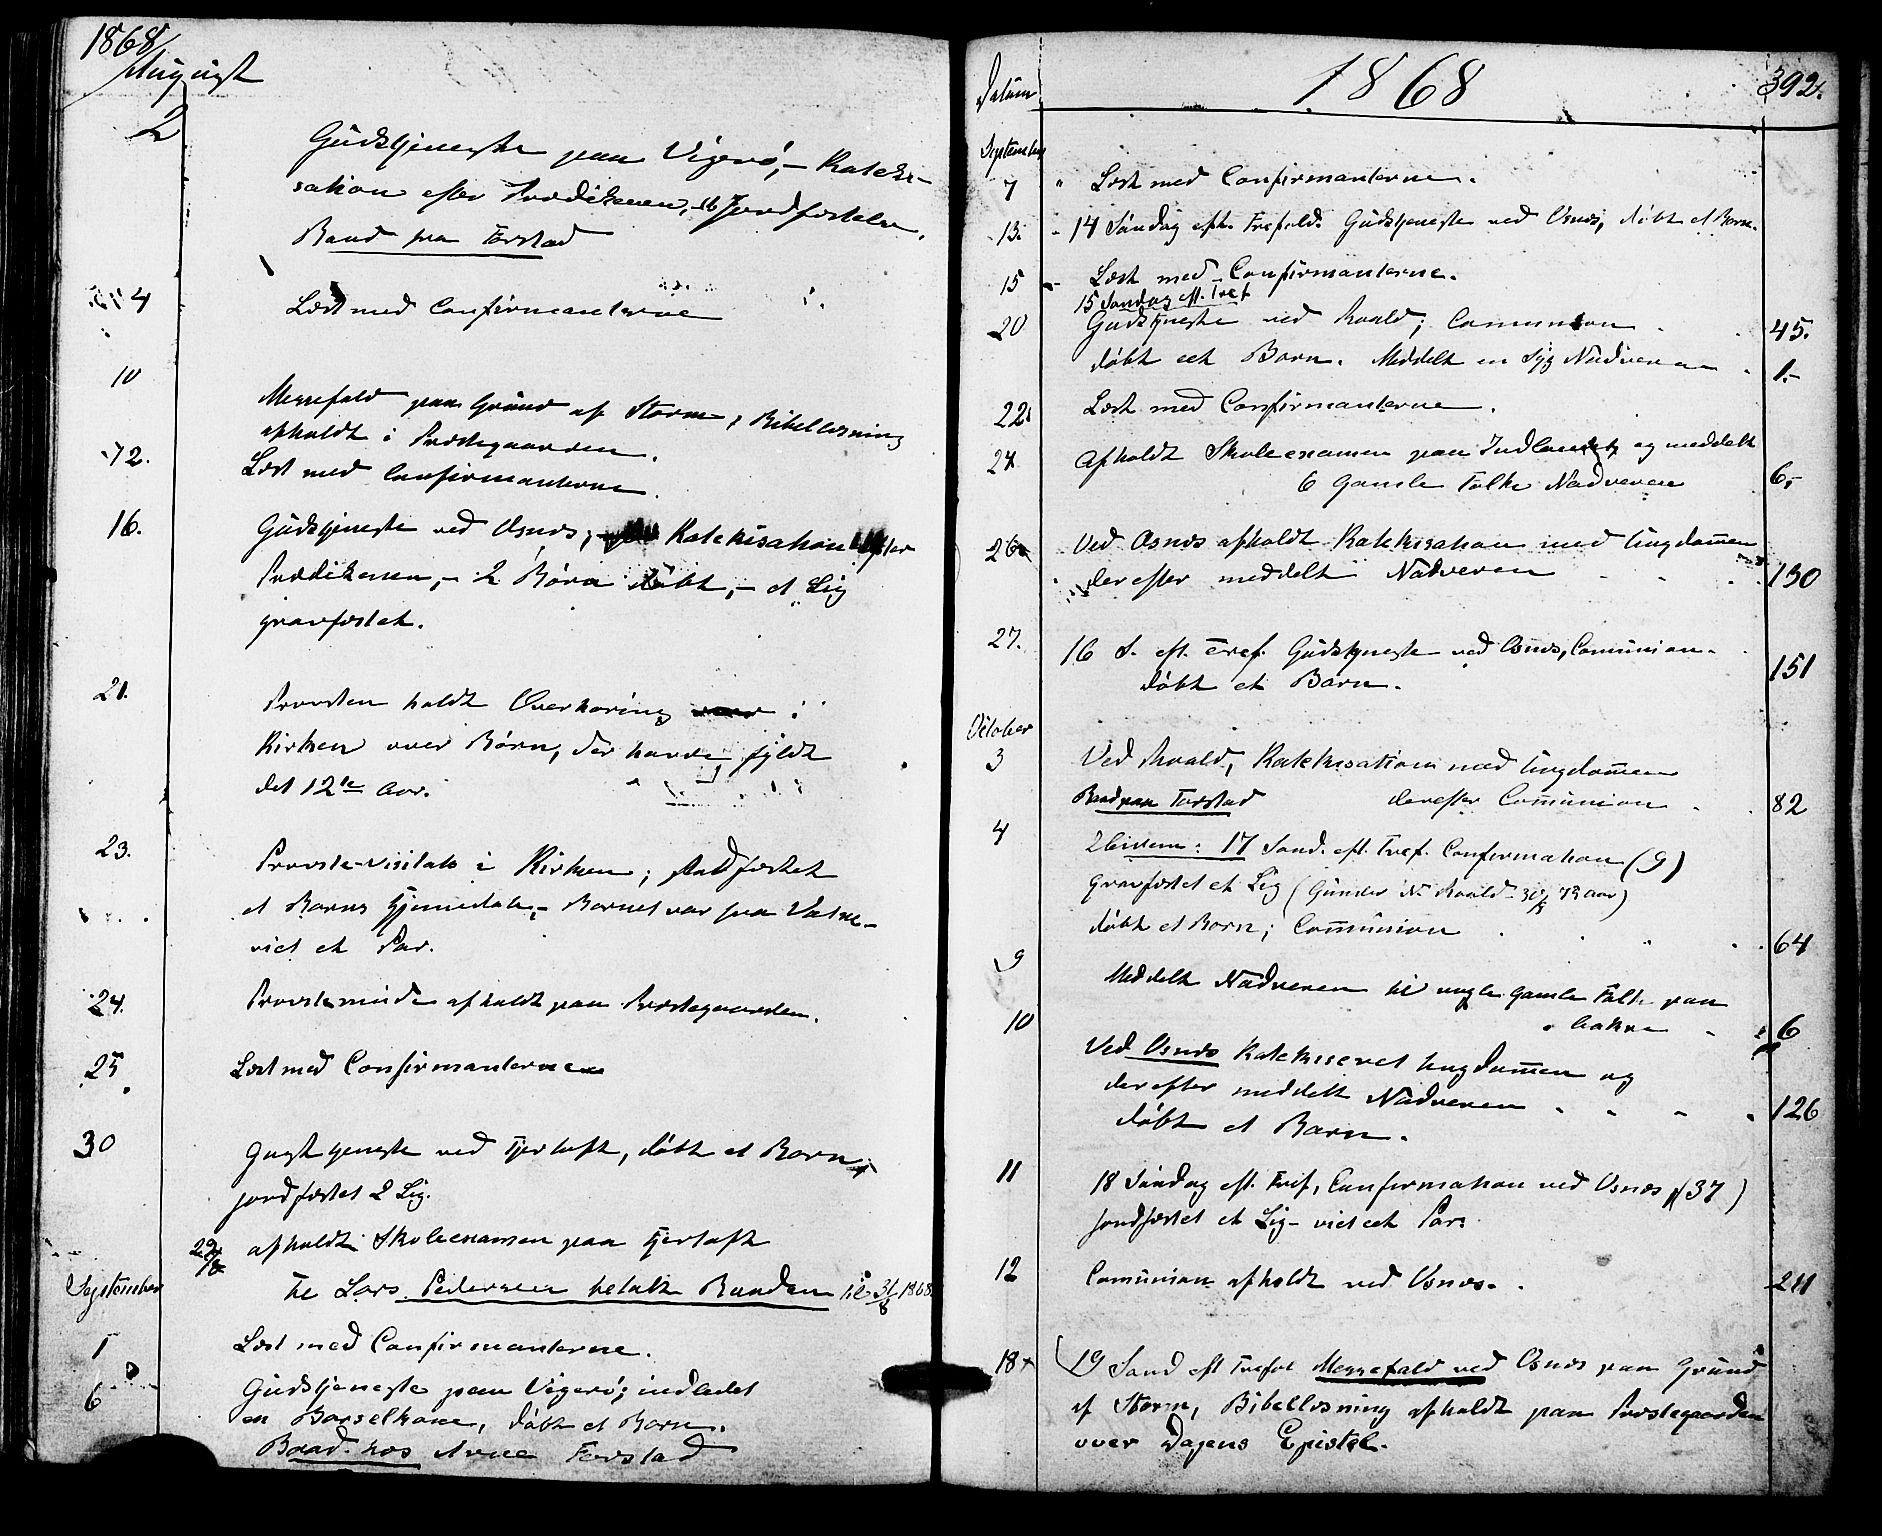 1868
August
2
Gudstjeneste paa Vigerø, – Kateki-
sation efter Prædikenen, – 16 Jordfæstelser.
Baad fra Farstad
4 Læst med Confirmanterne
10 Messefald paa Grund af Storm, Bibellæsning
afholdt i Præstegaarden.
12. Læst med Confirmanterne.
16. Gudstjeneste ved Osnæs; Katekisation efter
Prædikenen, – 2 Børn døbt, – et Lig
gravfæstet.
21. Provsten holdt Overhøring i
Kirken over Børn, der havde fyldt
det 12te Aar.
23. Provste-visitats i Kirken; stadfæstet
et Barns Hjemmedaab, – Barnet var fra Vatne –
viet et Par.
24. Provstemøde afholdt paa Præstegaarden.
25 Læst med Confirmanterne
30 Gudstjeneste ved Fjertoft, døbt et Barn,
jordfæstet 2 Lig.
29/8 afholdt Skoleexamen paa Fjertoft
Lars Pedersen betalt Baaden til 31/8 1868.
September
1 Læst med Confirmanterne.
6 Gudstjeneste paa Vigerø; indledet
en Barselkone, døbt et Barn.
Baad hos Arne Farstad
Datum 1868 392.
September
7 " Læst med Confirmanterne.
13. – 14 Søndag eft. Trefold. Gudstjeneste ved Osnæs, døbt et Barn.
15 – Læst med Confirmanterne.
15 Søndag eft. Tref
20 Gudstjeneste ved Roald; Comunion 45.
døbt eet Barn. Meddelt en Syg Nadveren 1.–
22. Læst med Confirmanterne.
24. Afholdt Skoleexamen paa Indlandet og meddelt
6 Gamle Folk Nadveren 6,
26 Ved Osnæs afholdt Katekisation med Ungdommen
derefter meddelt Nadveren 130
27. 16 S. eft. Tref. Gudstjeneste ved Osnæs, Comunion. 151
døbt et Barn.
October
3 Ved Roald, Katekisation med Ungdommen
Baad paa Farstad derefter Comunion 82
4 17 Sønd. eft. Tref. Confirmation (9)
gravfæstet et Lig (Gunder N. Roald – 30/8 73 Aar)
døbt et Barn; Comunion 64
9 Meddelt Nadveren til nogle gamle Folk paa
6
10 Ved Osnæs Katekiseret Ungdommen og
derefter meddelt Nadveren 126
døbt et Barn.
11 18 Søndag eft. Tref, Confirmation ved Osnæs (37)
jordfæstet et Lig – viet eet Par.
12 Comunion afholdt ved Osnæs. 211
18 19 Sønd eft Trefol Messefald ved Osnæs paa Grund
af Storm, Bibellæsning afholdt paa Præstegaarden
over Dagens Epistel.